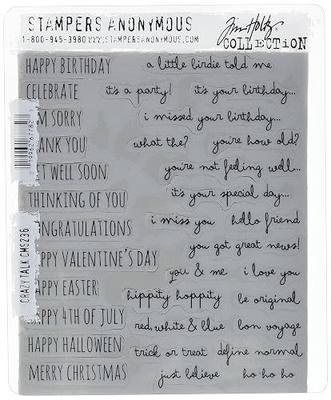 STAMPERS ANONYMOUS
1-800-945-3980 www.STAMPERSANONYMOUS.COM
Tim Holtz
COLLECTION
HAPPY BIRTHDAY a little birdie told me
CELEBRATE it's a party! it's your birthday...
I'M SORRY i missed your birthday...
THANK YOU what the? you're how old?
GET WELL SOON you're not feeling well...
THINKING OF YOU it's your special day...
CONGRATULATIONS i miss you hello friend
you got great news!
HAPPY VALENTINE'S DAY you & me i love you
HAPPY EASTER! hippity hoppity be original
HAPPY 4TH OF JULY red, white & blue bon voyage
HAPPY HALLOWEEN trick or treat define normal
MERRY CHRISTMAS just believe ho ho ho
CRAZY TALK CMS236